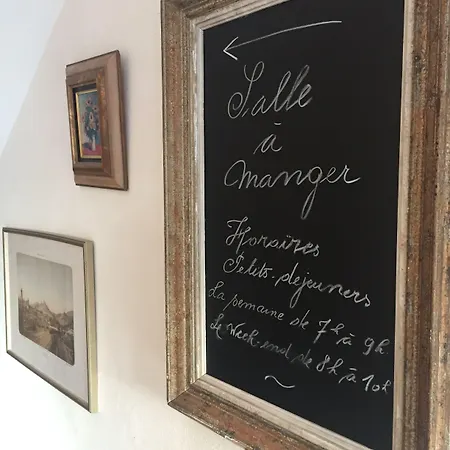 Salle
à
manger
Horaires
Petits-déjeuners
La semaine de 7h à 9h.
Le week-end de 8h à 10h